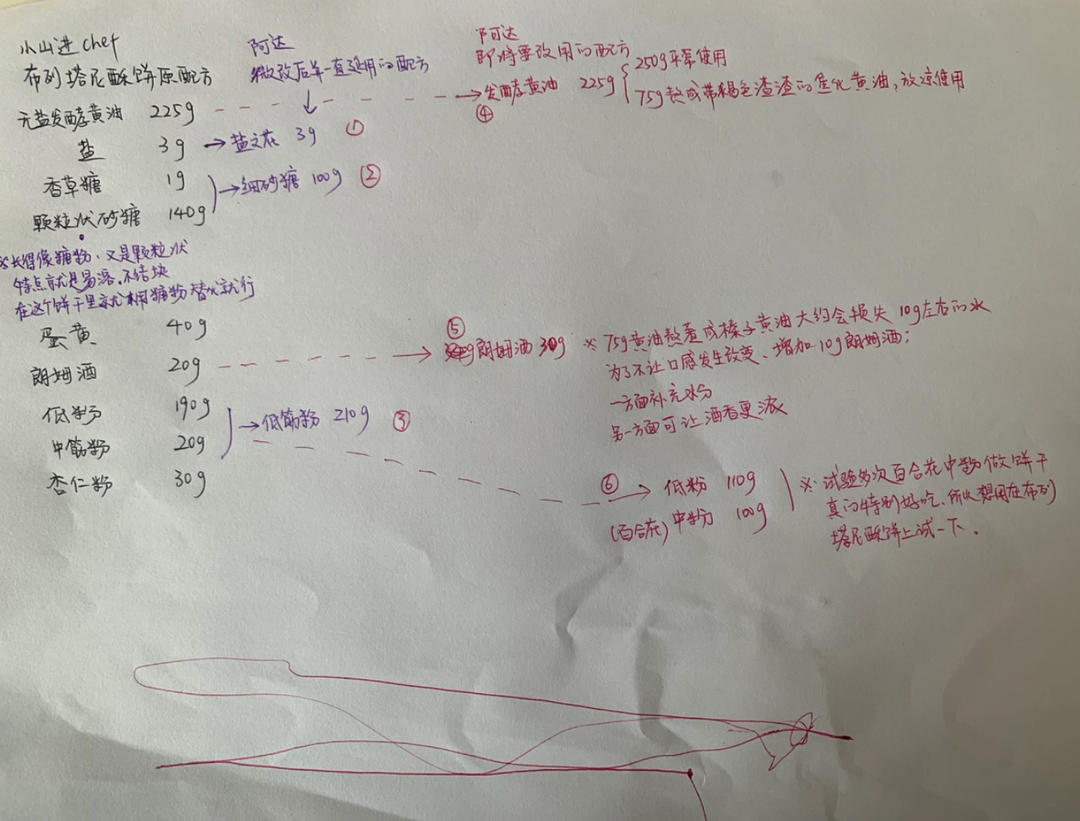 小山进 chef
布列塔尼酥饼原配方
阿达
微改后并一直延用的配方
阿达
即将要改用的配方
无盐发酵黄油 225g
→ 发酵黄油 225g
④
250g平常使用
75g熬成带褐色渣渣的焦化黄油,放凉使用
盐 3g → 盐之花 3g ①
香草糖 1g
颗粒状砂糖 140g
→ 细砂糖 100g ②
※长得像糖粉、又是颗粒状
特点就是易溶,不结块
在这个饼干里就用糖粉替代就行
蛋黄 40g
朗姆酒 20g
⑤
→ 朗姆酒 30g
※ 75g黄油熬煮成榛子黄油大约会损失10g左右的水
为了不让口感发生改变、增加10g朗姆酒;
一方面补充水分
另一方面可让酒香更浓
低粉 190g
中筋粉 20g
→ 低筋粉 210g ③
杏仁粉 30g
⑥ → 低粉 110g
(百合花) 中粉 100g
※ 试验多次百合花中粉做饼干
真的特别好吃、所以想用在布列
塔尼酥饼上试一下.